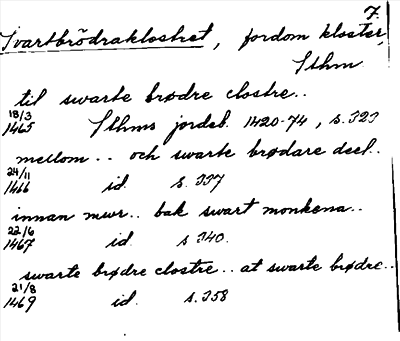 7.
Svartbrödraklostret, fordom kloster,
Sthm
til swarte brødre clostre..
18/3
1465 Sthms jordeb. 1420-74, s. 323
mellom.. och swarte brødare deel..
24/11
1466 id. s. 337
innan mwr.. bak swart monkena..
22/6
1467 id. s 340.
swarte brødre clostre.. at swarte brødre..
21/8
1469 id. s. 358